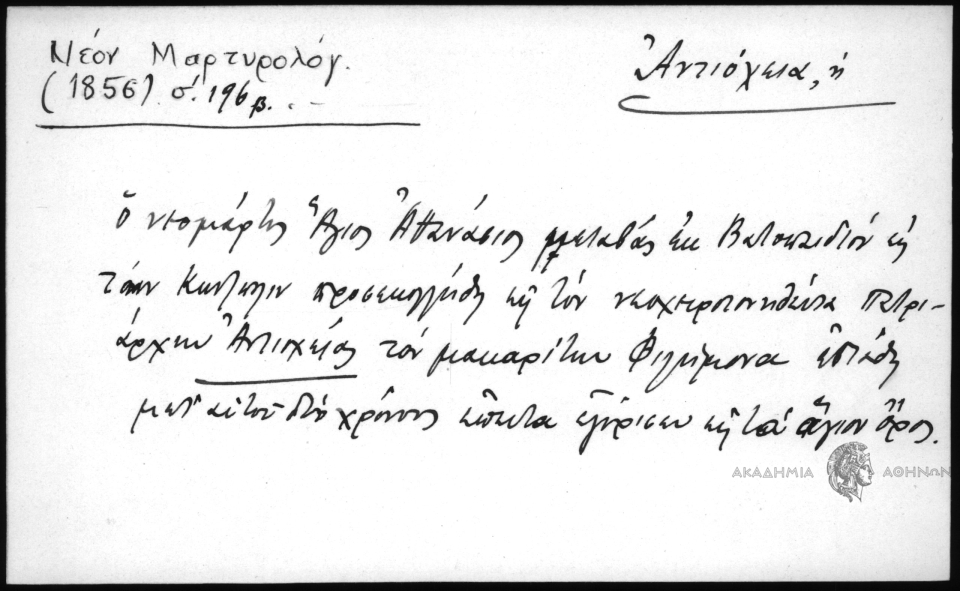 Νέον Μαρτυρολόγ.
(1856) σ. 196 β.
Ἀντιόχεια, ἡ
ὁ νεομάρτυς Ἅγιος Ἀθανάσιος μεταβάς ἐκ Βατοπεδίου εἰς
τὴν Κων/πολιν προσεκολλήθη εἰς τὸν νεοχειροτονηθέντα Πατρι-
άρχην Ἀντιοχείας τὸν μακαρίτην Φιλήμονα ἐστάθη
μετ' αὐτοῦ δύο χρόνους ἔπειτα ἐγύρισεν εἰς τὸ ἅγιον ὄρος.
ΑΚΑΔΗΜΙΑ ΑΘΗΝΩΝ